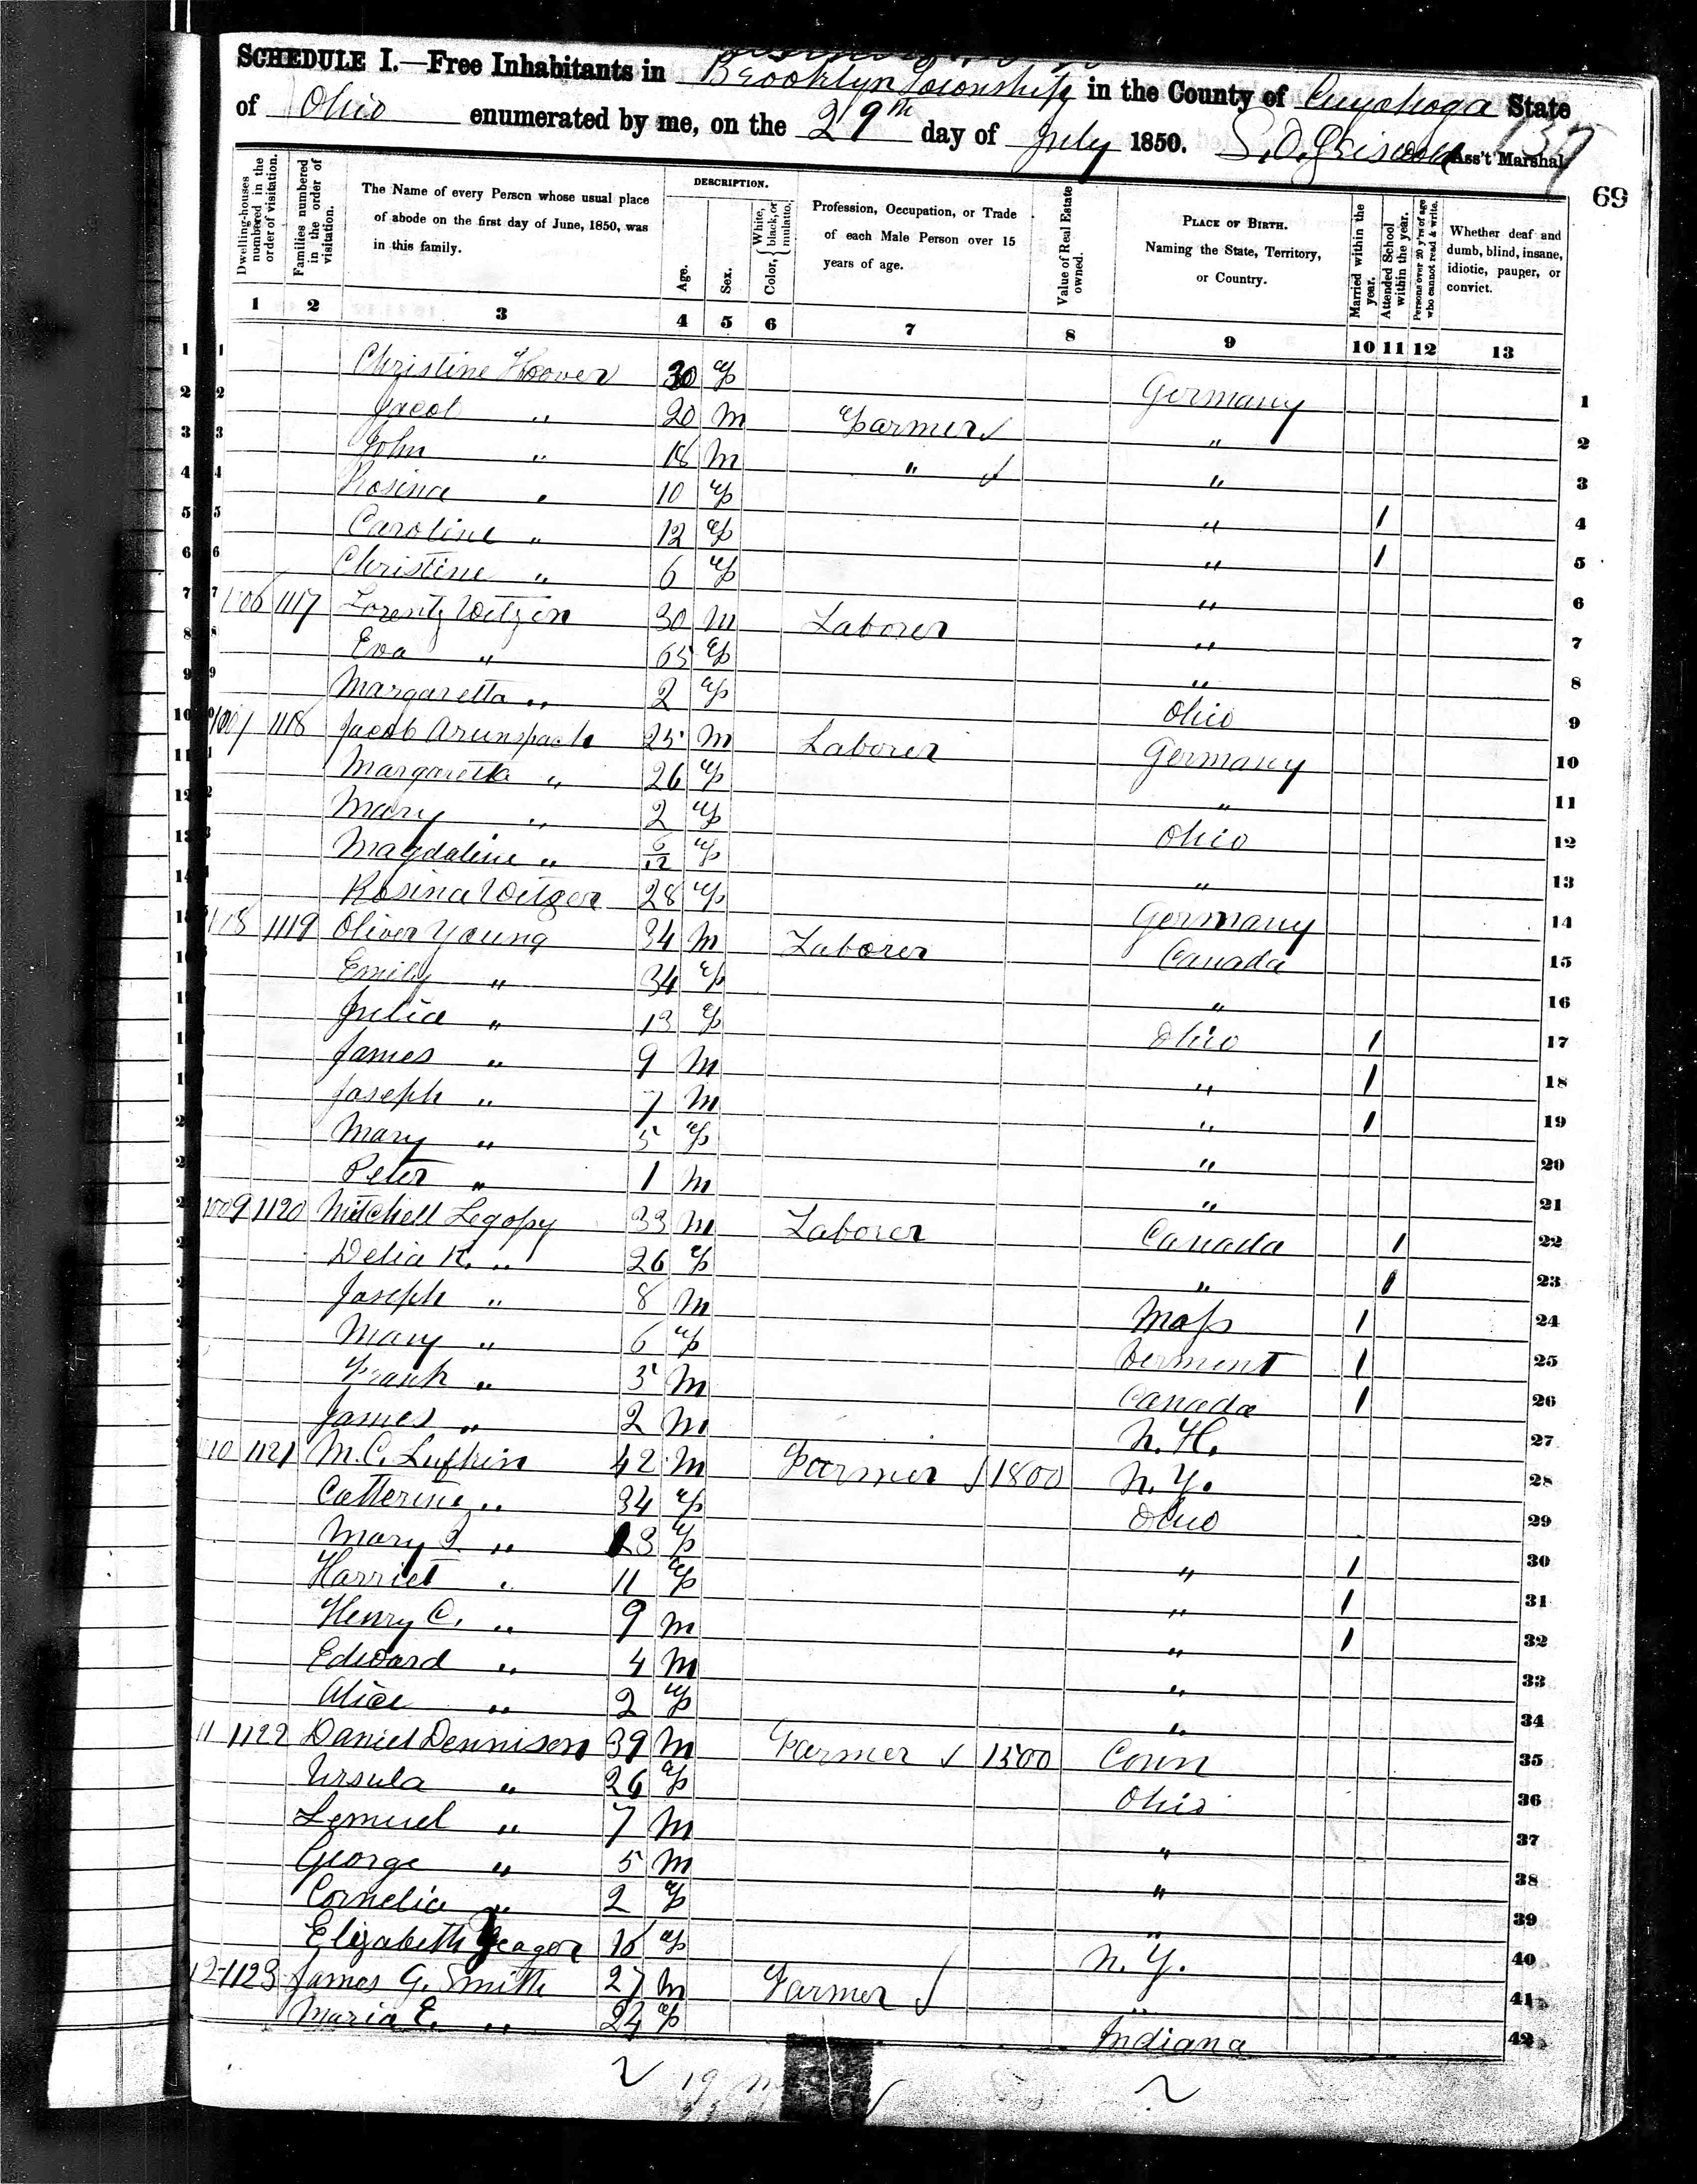 SCHEDULE I.—Free Inhabitants in Brooklyn Township in the County of Cuyahoga State
of Ohio enumerated by me, on the 29th day of July 1850. S.O. Griswold Ass't Marshal.
137
69
Dwelling-houses numbered in the order of visitation.
Families numbered in the order of visitation.
The Name of every Person whose usual place of abode on the first day of June, 1850, was in this family.
DESCRIPTION.
Age.
Sex.
Color, { White, black, or mulatto.
Profession, Occupation, or Trade of each Male Person over 15 years of age.
Value of Real Estate owned.
PLACE OF BIRTH. Naming the State, Territory, or Country.
Married within the year.
Attended School within the year.
Persons over 20 y'rs of age who cannot read & write.
Whether deaf and dumb, blind, insane, idiotic, pauper, or convict.
1 2 3 4 5 6 7 8 9 10 11 12 13
1 Christine Hoover 30 F Germany 1
2 Jacob " 20 M Farmer " 2
3 John " 18 M " " 3
4 Rosina " 10 F " 1 4
5 Caroline " 12 F " 1 5
6 Christine " 6 F " 6
7 1106 1117 Lorentz Witzen 30 M Laborer " 7
8 Eva " 65 F " 8
9 Margaretta " 2 F Ohio 9
10 1118 Jacob 25 M Laborer Germany 10
11 Margaretta " 26 F " 11
12 Mary " 2 F Ohio 12
13 Magdaline " 6/12 F " 13
14 Rosina Witzer 28 F Germany 14
1119 Oliver Young 34 M Laborer Canada 15
Emily " 34 F " 16
Julia " 13 F Ohio 1 17
James " 9 M " 1 18
Joseph " 7 M " 1 19
Mary " 5 F " 20
Peter " 1 M " 21
1120 Mitchell Legopy 33 M Laborer Canada 1 22
Delia R. " 26 F " 1 23
Joseph " 8 M Mass 1 24
Mary " 6 F Vermont 1 25
Frank " 5 M Canada 1 26
James " 2 M N.H. 27
10 1121 M.C. Lufkin 42 M Farmer 1800 N.Y. 28
Catterine " 34 F Ohio 29
Mary " 13 F " 1 30
Harriet " 11 F " 1 31
Henry C. " 9 M " 1 32
Edward " 4 M " 33
Alice " 2 F " 34
11 1122 Daniel Dennison 39 M Farmer 1500 Conn 35
Ursula " 26 F Ohio 36
Lemuel " 7 M " 37
George " 5 M " 38
Cornelia " 2 F " 39
Elizabeth Yeager 16 F N.Y. 40
12 1123 James G. Smith 27 M Farmer " 41
Maria E. " 24 F Indiana 42